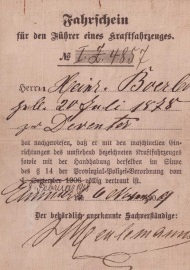 Fahrschein
für den Führer eines Kraftfahrzeuges.
№ IZ 4857
Herrn Heinr. Boerbo
geb. 20 Juli 1878
zu Deventer
hat nachgewiesen, daß er mit den maschinellen Ein-
richtungen des nachstehend bezeichneten Kraftfahrzeuges
sowie mit der Handhabung derselben im Sinne
des § 14 der Provinzial-Polizei-Verordnung vom
1. September 1906 völlig vertraut ist.
Der behördlich anerkannte Sachverständige: